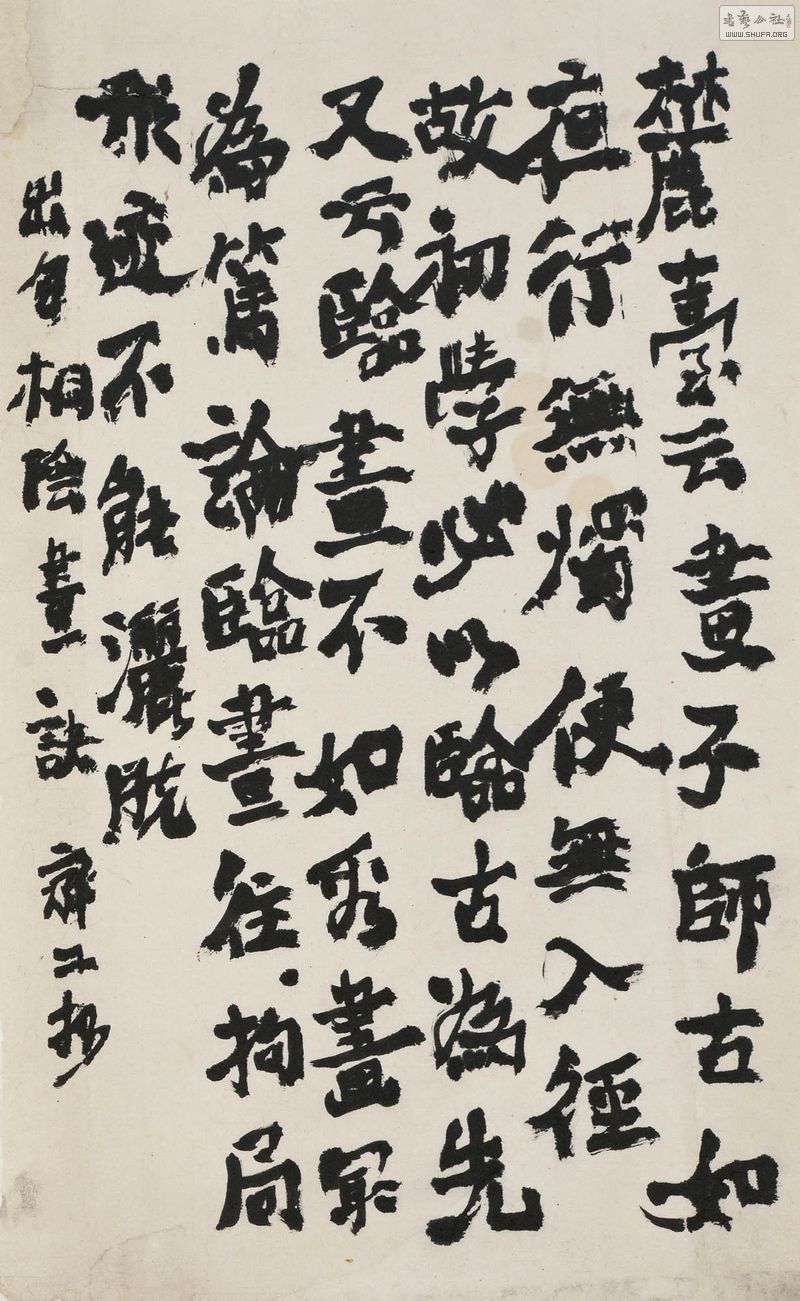 麓臺云畫子師古如
夜行無燭便無入徑
故初學必以臨古為先
又云臨畫不如看畫最
為篤論臨畫往〻拘局
形迹不能灑脫
出自桐陰畫訣 齊工抄
书艺公社
WWW.SHUFA.ORG